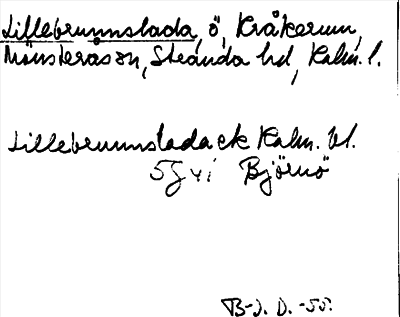 Lillebrunnslada, ö, Kråkerum,
Mönsterås sn, Stranda hd, Kalm. l.
Lillebrunnsladack Kalm. bl.
5G vi Björnö
B-J. D. -55.